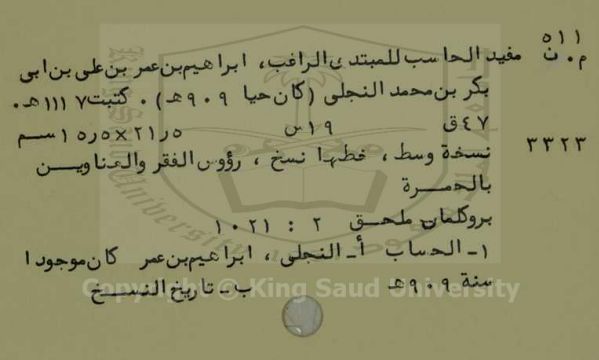 ٥١١
م.ن مفيد الحاسب للمبتدى الراغب، ابراهيم بن عمر بن على بن ابى
بكر بن محمد النجلى (كان حيا ٩٠٩هـ). كتبت ١١١٧هـ.
٤٧ق ١٩س ٢١٫٥×١٥٫٥سم
٣٣٢٣ نسخة وسط، خطها نسخ، رؤوس الفقر والعناويـن
بالحمـرة
بروكلمان ملحـق ٢ : ١٠٢١
١ـ الحساب أـ النجلى، ابراهيم بن عمر كان موجودا
سنة ٩٠٩هـ ب ـ تاريخ النسـخ
Copyright © King Saud University